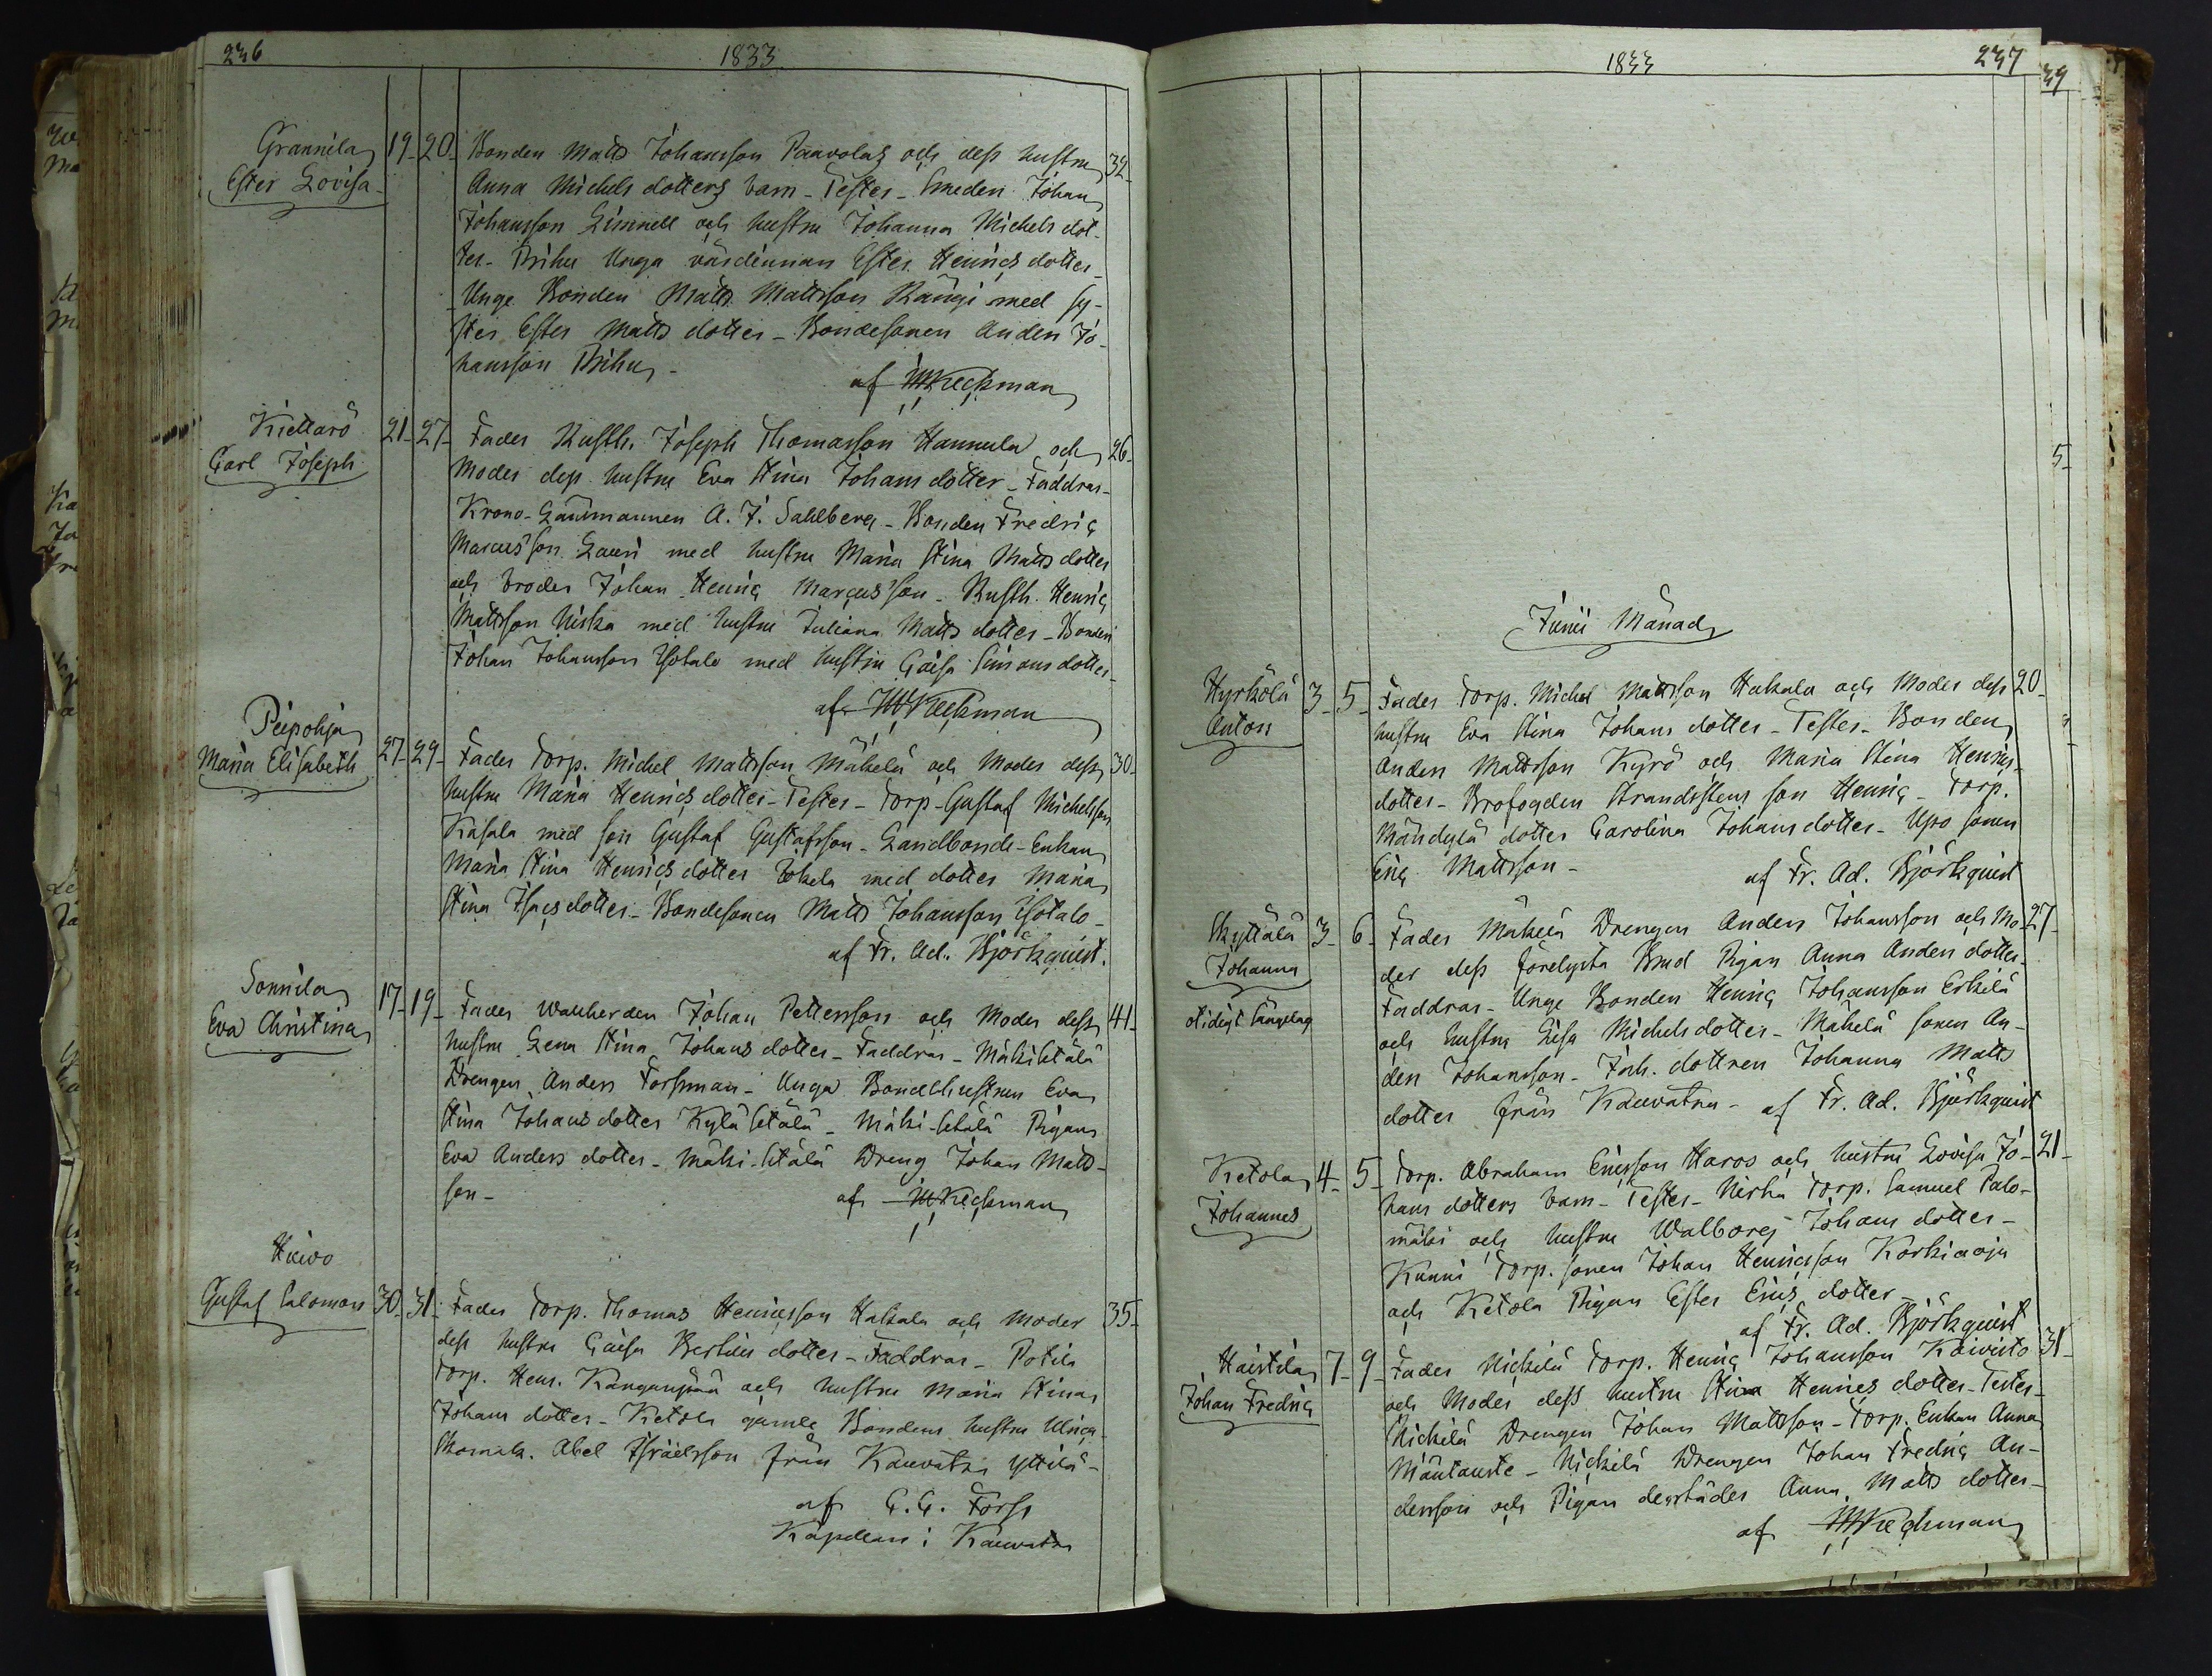 236
1833
Grannila 19. 20. Bonden Matts Johansson Paavolas och dess hustru 32.
Ester Lovisa. Anna Michels dotters barn. Testes. Smeden Johan
Johansson Limnell och hustru Johanna Michels dot-
ter. Prihu Unga värdinnan Ester Henrics dotter.
Unge Bonden Matts Mattsson Rängi med sy-
ster Ester Matts dotter. Bondesonen Anders Jo-
hansson Prihu.
af W Keckman
Kiettarö 21. 27. Fader Rusth. Joseph Thomasson Hannula och 26.
Carl Joseph Moder dess hustru Eva Stina Johans dotter. Faddrar.
Krono-Länsmannen A. J. Sahlberg. Bonden Fredric
Marcus'son Lauri med hustru Maria Stina Matts dotter
och broder Johan Henric Marcus'son. Rusth. Henric
Mattsson Niska med hustru Juliana Matts dotter. Bonden
Johan Johansson Ysotalo med hustru Caisa Simons dotter.
af W Keckman
Peipohja
Maria Elisabeth 27. 29. Fader Torp. Michel Mattsson Mäkelä och Moder dess 30.
hustru Maria Henrics dotter. Testes. Torp. Gustaf Michelsson
Kasala med son Gustaf Gustafsson. Landbonde-Enkan
Maria Stina Henrics dotter Tokela med dotter Maria
Stina Isacs dotter. Bondesonen Matts Johansson Isotalo.
af Fr. Ad. Björkquist.
Sonnila 17. 19. Fader Wallherden Johan Pettersson och Moder dess 41.
Eva Christina hustru Lena Stina Johans dotter. Faddrar. MäkiSetälä
Drengen Anders Forssman. Unga Bondehustrun Eva
Stina Johans dotter KyläSetälä. Mäki-Setälä Pigan
Eva Anders dotter. Mäki-Setälä Dreng Johan Matts-
son. af W Keckman
Haivo
Gustaf Salomon 30. 31. Fader Torp. Thomas Henricsson Hakala och Moder 35.
dess hustru Caisa Bertils dotter. Faddrar. Potila
Torp. Henr. Kanganpää och hustru Maria Stina
Johans dotter. Ketola gamle Bondens hustru Ulrica
Abel Israelsson från Kauvatsa Yttilä.
af C. G. Forss
Kapellan i Kauvatsa
1833
237
39
5.
Junii Månad
Hyrkölä 3. 5. Fader Torp. Michel Mattsson Hakala och Moder dess 20.
Anton hustru Eva Stina Johans dotter. Testes. Bonden
Anders Mattsson Kyrö och Maria Stina Henrics
dotter. Brofogden Strandstens son Henric. Torp.
Mändylä dotter Carolina Johans dotter. Upo sonen
Eric Mattsson. af Fr. Ad. Björkquist
Skyttälä 3. 6. Fader Mäkelä Drengen Anders Johansson och Mo- 27.
Johanna der dess förelysta Brud Pigan Anna Anders dotter.
otidigt sängelag Faddrar. Unge Bonden Henric Johansson Erkilä
och hustru Lisa Michels dotter. Mäkelä sonen An-
ders Johansson. Inh. dottren Johanna Matts
dotter från Kauvatsa. af Fr. Ad. Björkquist
Ketola 4. 5. Torp. Abraham Ericsson Haros och hustru Lovisa Jo- 21.
Johannes hans dotters barn. Testes. Niska Torp. Samuel Palo-
mäki och hustru Walborg Johans dotter.
Kunni Torp. sonen Johan Henricsson Korkiaoja
och Ketola Pigan Ester Erics dotter.
af Fr. Ad. Björkquist
Haistila 7. 9. Fader Nickilä Torp. Henric Johansson Koivisto 31.
Johan Fredric och Moder dess hustru Stina Henrics dotter. Testes.
Nickilä Drengen Johan Mattsson. Torp. Enkan Anna
Mäntauste. Nickilä Drengen Johan Fredric An-
dersson och Pigan derstädes Anna Matts dotter.
af W Keckman